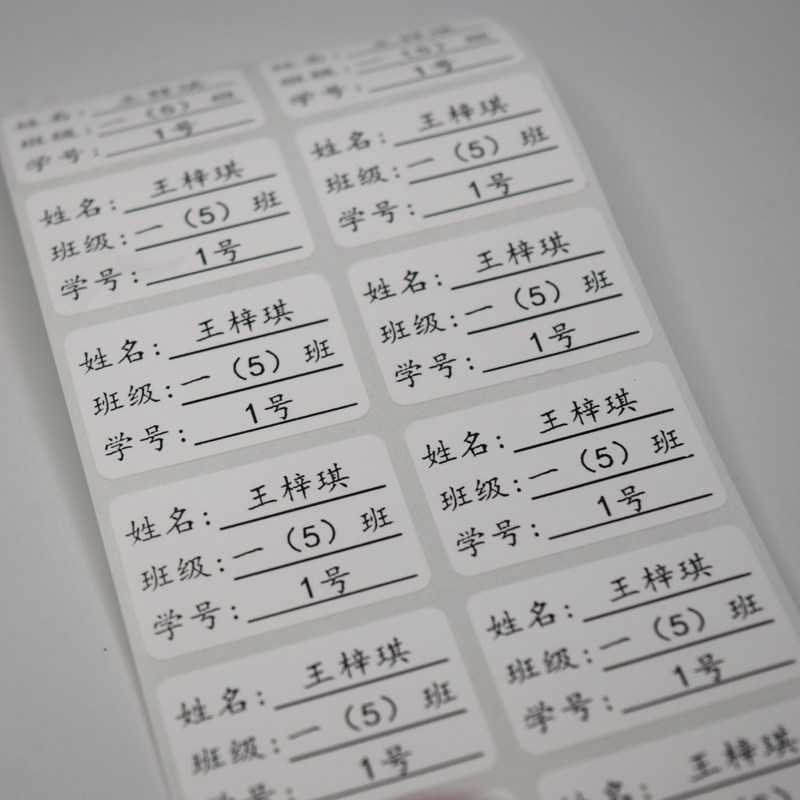 姓名： 王梓琪
班级：一（5）班
学号： 1号
姓名： 王梓琪
班级：一（5）班
学号： 1号
姓名： 王梓琪
班级：一（5）班
学号： 1号
姓名： 王梓琪
班级：一（5）班
学号： 1号
姓名： 王梓琪
班级：一（5）班
学号： 1号
姓名： 王梓琪
班级：一（5）班
学号： 1号
姓名： 王梓琪
班级：一（5）班
学号： 1号
姓名： 王梓琪
班级：一（5）班
学号： 1号
姓名： 王梓琪
班级：一（5）班
学号： 1号
姓名： 王梓琪
班级：一（5）班
学号： 1号
王梓琪